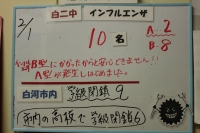 2/1
白二中 インフルエンザ
10名 A 2
B 8
B型にかかったから安心できません!!
A型が発生しはじめました。
白河市内 学級閉鎖 9
市内の高校で学級閉鎖6